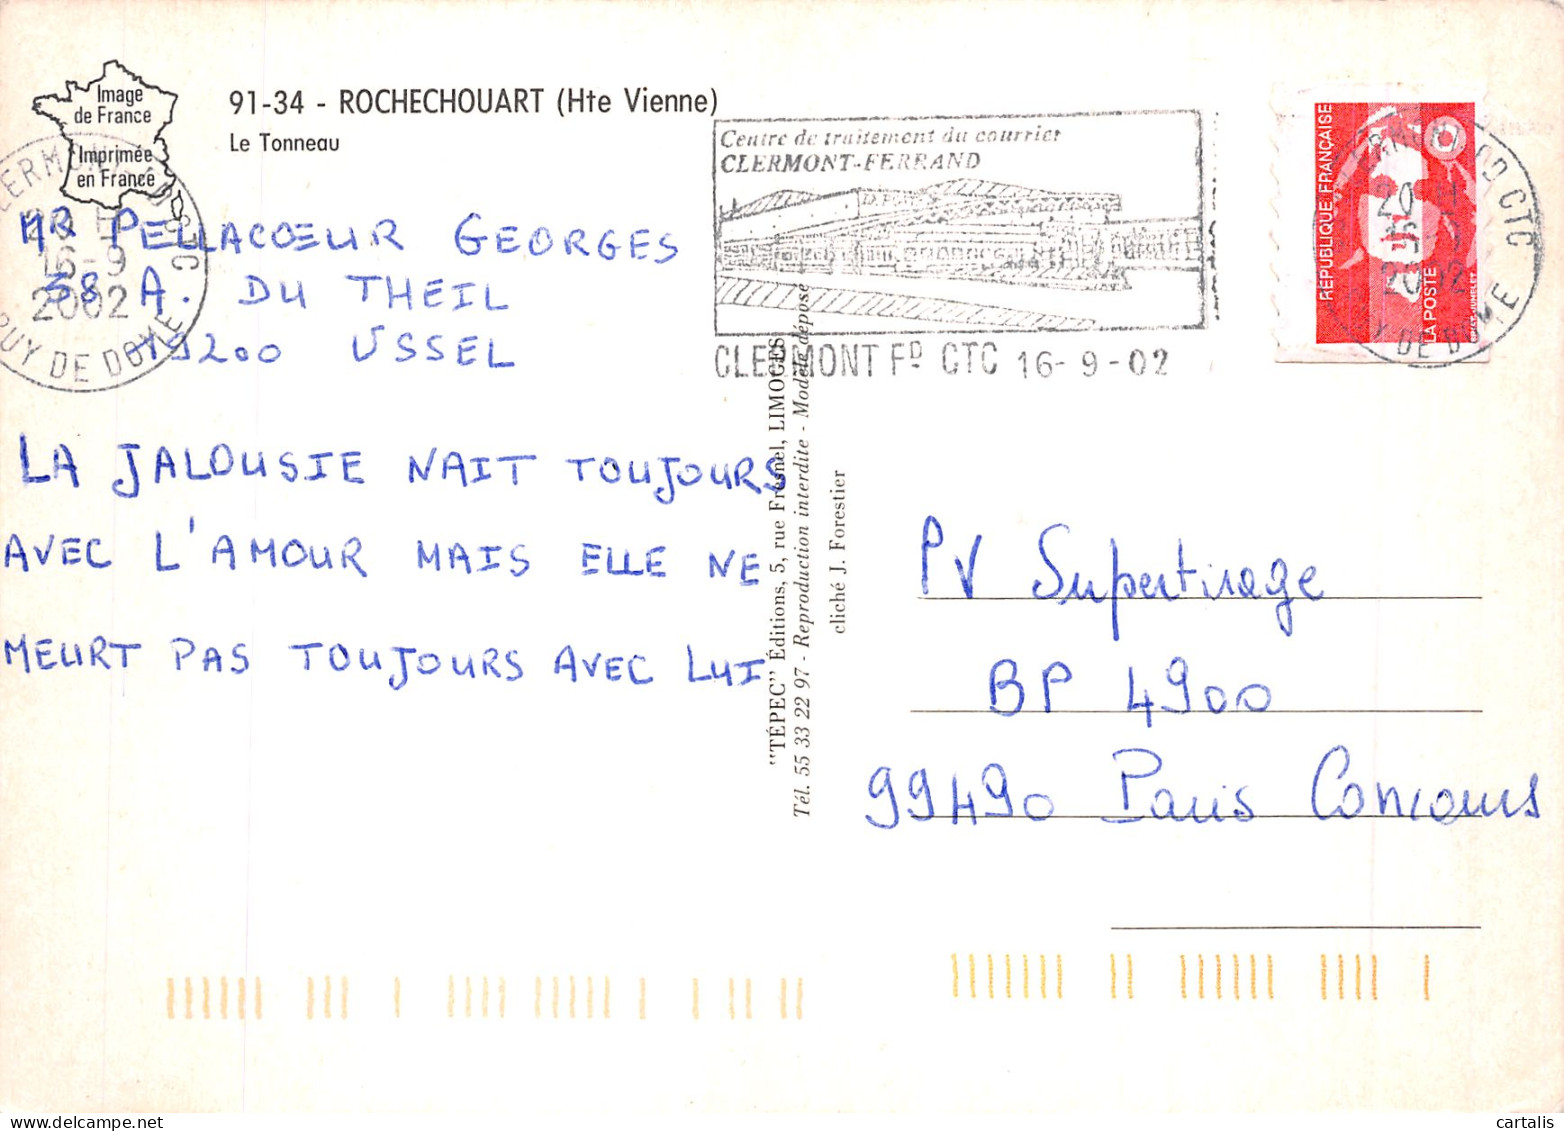 Image
de France
Imprimée
en France
91-34 - ROCHECHOUART (Hte Vienne)
Le Tonneau
MR PELLACŒUR GEORGES
38 A. DU THEIL
19200 USSEL
LA JALOUSIE NAIT TOUJOURS
AVEC L'AMOUR MAIS ELLE NE
MEURT PAS TOUJOURS AVEC LUI
CLERMONT CTC
16-9
2002
PUY DE DOME
Centre de traitement du courrier
CLERMONT-FERRAND
CLERMONT FD CTC 16-9-02
"TÉPEC" Éditions, 5, rue Fresnel, LIMOGES
Tél. 55 33 22 97 - Reproduction interdite - Modèle déposé
cliché J. Forestier
RÉPUBLIQUE FRANÇAISE
LA POSTE
CTC
PUY DE DOME
PV Supertirage
BP 4900
99490 Paris Concours
cartalis